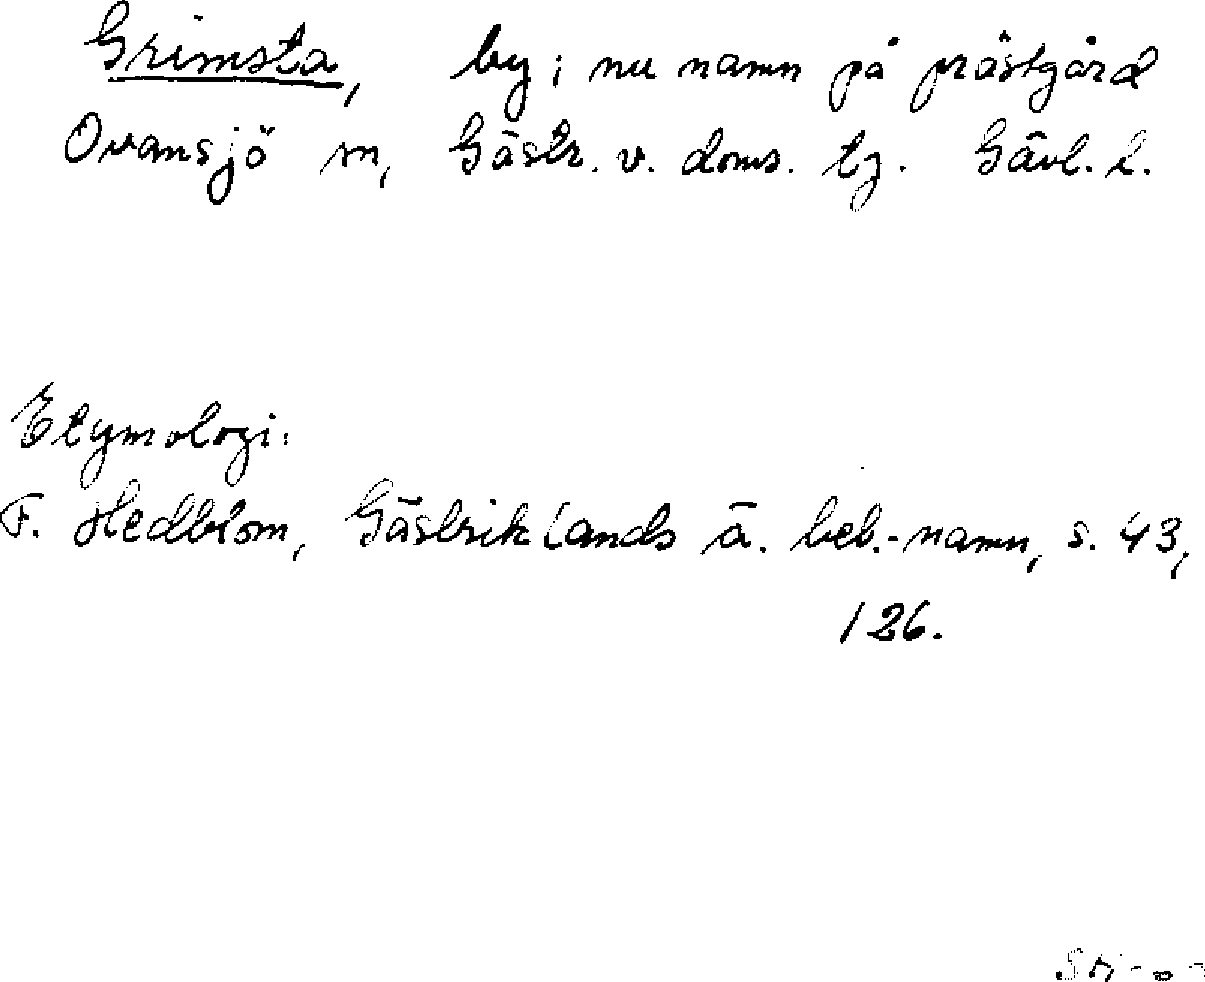 Grimsta, by; nu namn på prästgård
Ovansjö sn, Gästr. v. doms. tg. Gävl. l.
Etymologi:
F. Hedblom, Gästriklands ä. beb.-namn, s. 43,
126.